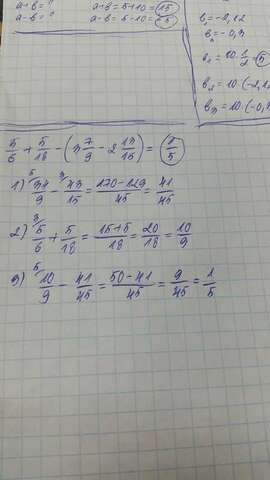 a+b=?
a-b=?
a+b=5+10=15
a-b=5-10=
b₁=-2,12
b=-0,3
5/6 + 5/18 - (3 7/9 - 2 13/15) = 1/5
1) 34/9 - 43/15 = (170-129)/45 = 41/45
2) 5/6 + 5/18 = (15+5)/18 = 20/18 = 10/9
3) 10/9 - 41/45 = (50-41)/45 = 9/45 = 1/5